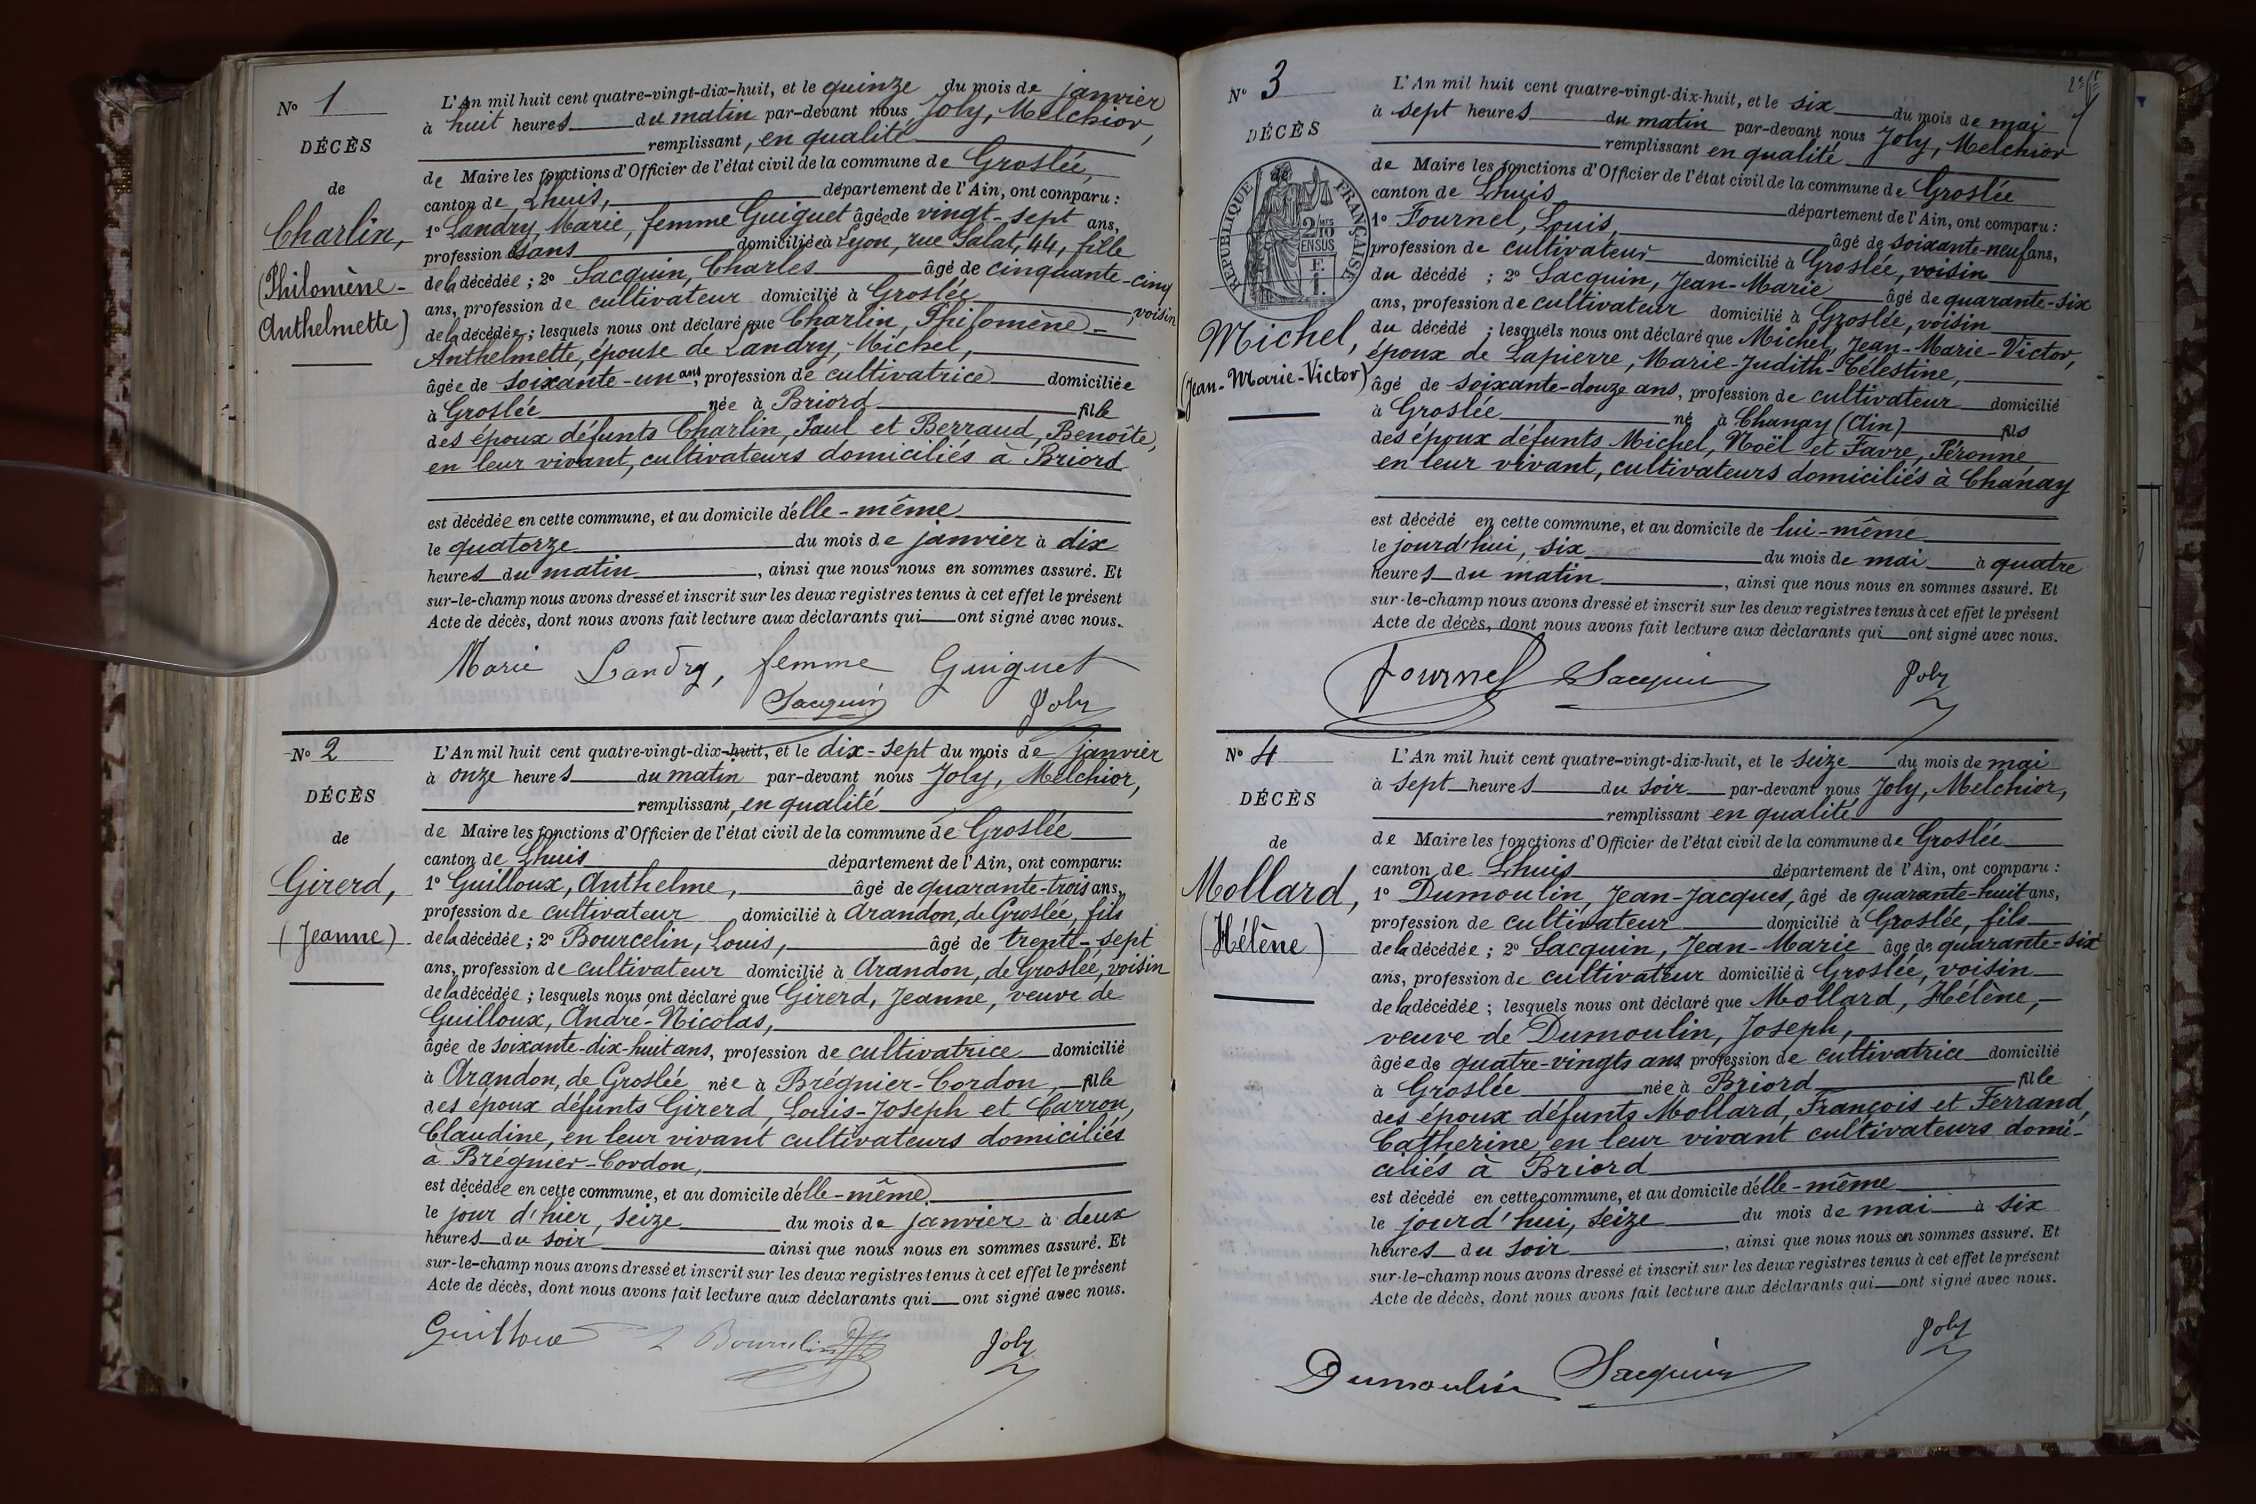 N° 1
DÉCÈS
de
Charlin,
(Philomène-
Anthelmette)
L'An mil huit cent quatre-vingt-dix-huit, et le quinze du mois de janvier
à huit heures du matin par-devant nous Joly, Melchior,
remplissant, en qualité
de Maire les fonctions d'Officier de l'état civil de la commune de Groslée,
canton de Lhuis, département de l'Ain, ont comparu :
1° Landry, Marie, femme Guiguet âgée de vingt-sept ans,
profession sans domiciliée à Lyon, rue Salat, 44, fille
de la décédée ; 2° Sacquin, Charles âgé de cinquante-cinq
ans, profession de cultivateur domicilié à Groslée, voisin
de la décédée ; lesquels nous ont déclaré que Charlin, Philomène-
Anthelmette, épouse de Landry, Michel,
âgée de soixante-un ans, profession de cultivatrice domiciliée
à Groslée née à Briord fille
des époux défunts Charlin, Paul et Berraud, Benoîte,
en leur vivant, cultivateurs domiciliés à Briord
est décédée en cette commune, et au domicile d'elle-même
le quatorze du mois de janvier à dix
heures du matin, ainsi que nous nous en sommes assuré. Et
sur-le-champ nous avons dressé et inscrit sur les deux registres tenus à cet effet le présent
Acte de décès, dont nous avons fait lecture aux déclarants qui ont signé avec nous.
Marie Landry, femme Guiguet
Sacquin Joly
N° 2
DÉCÈS
de
Girerd,
(Jeanne)
L'An mil huit cent quatre-vingt-dix-huit, et le dix-sept du mois de janvier
à onze heures du matin par-devant nous Joly, Melchior,
remplissant, en qualité
de Maire les fonctions d'Officier de l'état civil de la commune de Groslée
canton de Lhuis département de l'Ain, ont comparu:
1° Guilloux, Anthelme, âgé de quarante-trois ans,
profession de cultivateur domicilié à Arandon, de Groslée, fils
de la décédée ; 2° Bourcelin, Louis, âgé de trente-sept
ans, profession de cultivateur domicilié à Arandon, de Groslée, voisin
de la décédée ; lesquels nous ont déclaré que Girerd, Jeanne, veuve de
Guilloux, André-Nicolas,
âgée de soixante-dix-huit ans, profession de cultivatrice domicilié
à Arandon, de Groslée née à Brégnier-Cordon, fille
des époux défunts Girerd, Louis-Joseph et Carron,
Claudine, en leur vivant cultivateurs domiciliés
à Brégnier-Cordon,
est décédée en cette commune, et au domicile d'elle-même
le jour d'hier, seize du mois de janvier à deux
heures du soir ainsi que nous nous en sommes assuré. Et
sur-le-champ nous avons dressé et inscrit sur les deux registres tenus à cet effet le présent
Acte de décès, dont nous avons fait lecture aux déclarants qui ont signé avec nous.
Guilloux L Bourcelin Joly
N° 3
DÉCÈS
de
RÉPUBLIQUE FRANÇAISE
2/10
EN SUS
Michel,
(Jean-Marie-Victor)
L'An mil huit cent quatre-vingt-dix-huit, et le six du mois de mai
à sept heures du matin par-devant nous Joly, Melchior
remplissant en qualité
de Maire les fonctions d'Officier de l'état civil de la commune de Groslée
canton de Lhuis département de l'Ain, ont comparu :
1° Fournel, Louis, âgé de soixante-neuf ans,
profession de cultivateur domicilié à Groslée, voisin
du décédé ; 2° Sacquin, Jean-Marie âgé de quarante-six
ans, profession de cultivateur domicilié à Groslée, voisin
du décédé ; lesquels nous ont déclaré que Michel, Jean-Marie-Victor,
époux de Lapierre, Marie-Judith-Célestine,
âgé de soixante-douze ans, profession de cultivateur domicilié
à Groslée né à Chanay (Ain) fils
des époux défunts Michel, Noël et Favre, Péronne
en leur vivant, cultivateurs domiciliés à Chanay
est décédé en cette commune, et au domicile de lui-même
le jourd'hui, six du mois de mai à quatre
heures du matin, ainsi que nous nous en sommes assuré. Et
sur-le-champ nous avons dressé et inscrit sur les deux registres tenus à cet effet le présent
Acte de décès, dont nous avons fait lecture aux déclarants qui ont signé avec nous.
Fournel Sacquin Joly
N° 4
DÉCÈS
de
Mollard,
(Hélène)
L'An mil huit cent quatre-vingt-dix-huit, et le seize du mois de mai
à sept heures du soir par-devant nous Joly, Melchior,
remplissant en qualité
de Maire les fonctions d'Officier de l'état civil de la commune de Groslée
canton de Lhuis département de l'Ain, ont comparu :
1° Dumoulin, Jean-Jacques, âgé de quarante-huit ans,
profession de cultivateur domicilié à Groslée, fils
de la décédée ; 2° Sacquin, Jean-Marie âgé de quarante-six
ans, profession de cultivateur domicilié à Groslée, voisin
de la décédée ; lesquels nous ont déclaré que Mollard, Hélène,
veuve de Dumoulin, Joseph,
âgée de quatre-vingts ans profession de cultivatrice domicilié
à Groslée née à Briord fille
des époux défunts Mollard, François et Ferrand,
Catherine, en leur vivant cultivateurs domi-
ciliés à Briord
est décédé en cette commune, et au domicile d'elle-même
le jourd'hui, seize du mois de mai à six
heures du soir, ainsi que nous nous en sommes assuré. Et
sur-le-champ nous avons dressé et inscrit sur les deux registres tenus à cet effet le présent
Acte de décès, dont nous avons fait lecture aux déclarants qui ont signé avec nous.
Dumoulin Sacquin Joly